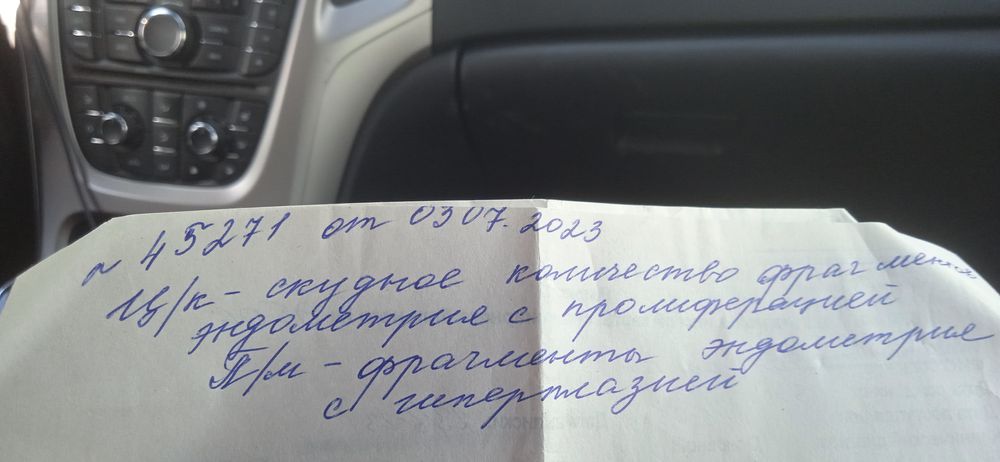 № 45271 от 03 07. 2023
Ц/к - скудное количество фрагменты
эндометрия с пролиферацией
П/м - фрагменты эндометрия
с гиперплазией